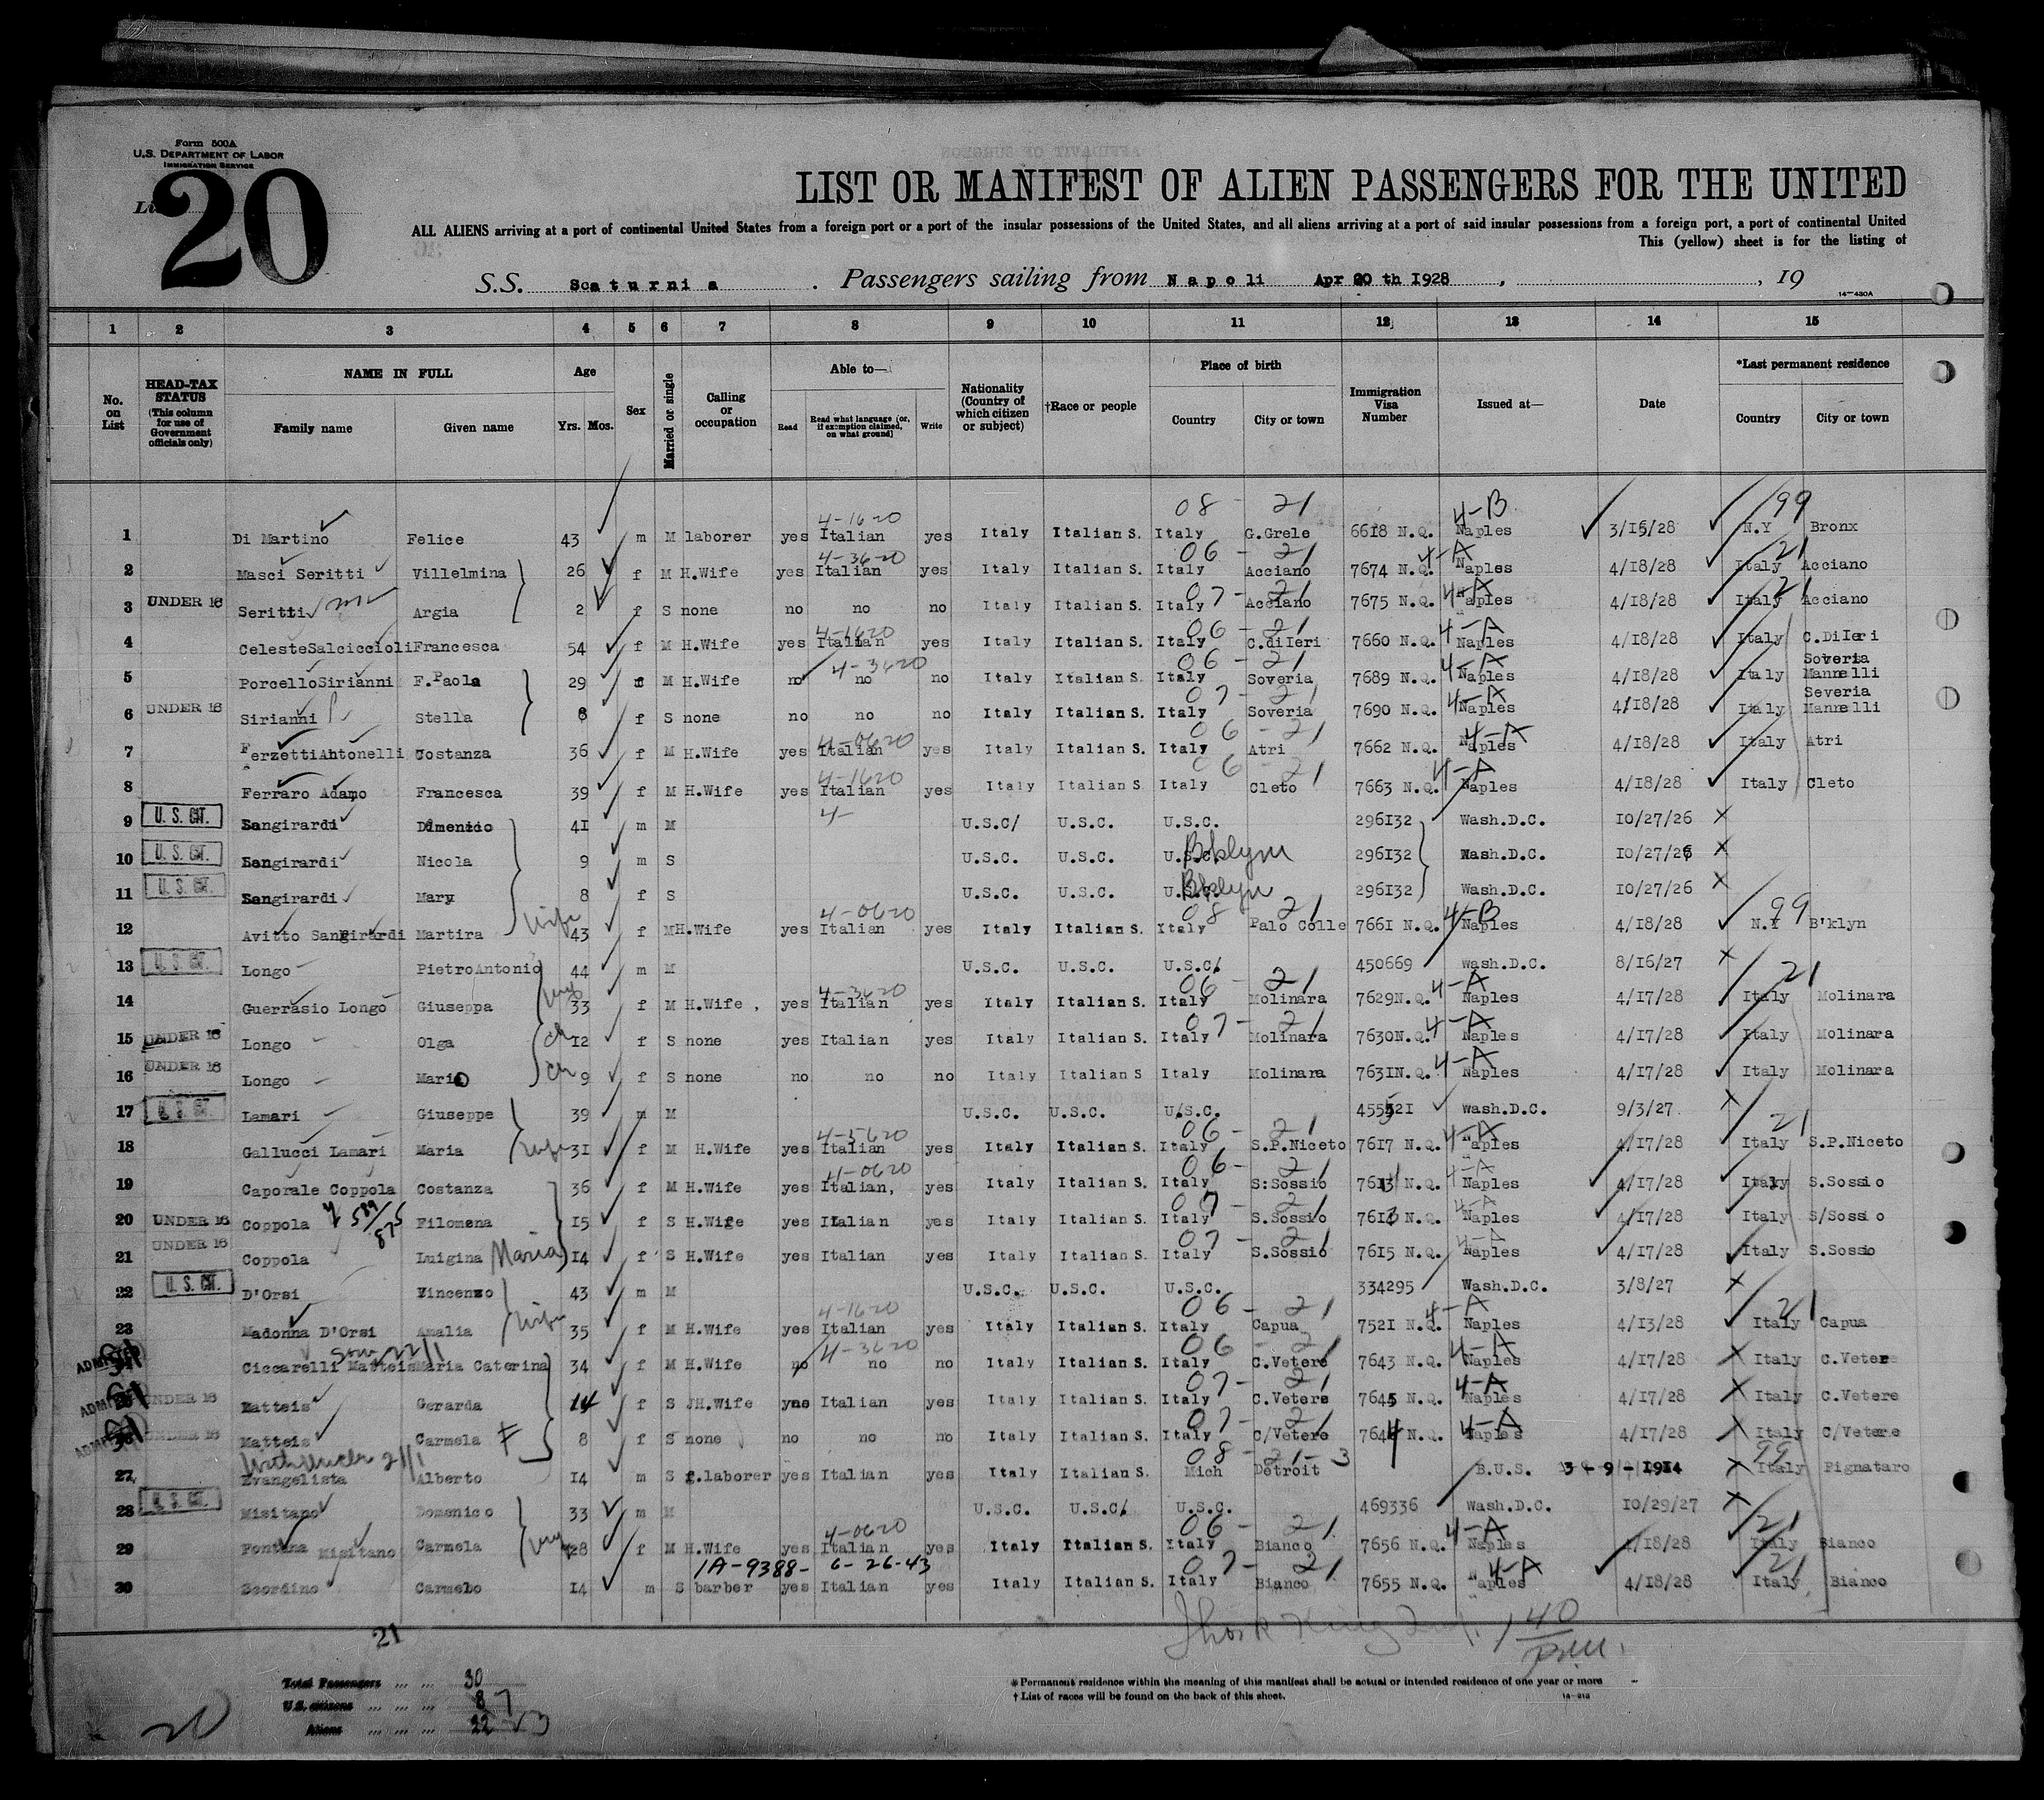 Form 500A
U.S. DEPARTMENT OF LABOR
IMMIGRATION SERVICE
20
LIST OR MANIFEST OF ALIEN PASSENGERS FOR THE UNITED
ALL ALIENS arriving at a port of continental United States from a foreign port or a port of the insular possessions of the United States, and all aliens arriving at a port of said insular possessions from a foreign port, a port of continental United
This (yellow) sheet is for the listing of
S.S. Scaturnia. Passengers sailing from Napoli Apr 20 th 1928, , 19
14—430A
1 2 3 4 5 6 7 8 9 10 11 12 13 14 15
No. on List
HEAD-TAX STATUS (This column for use of Government officials only)
NAME IN FULL Family name Given name
Age Yrs. Mos.
Sex
Married or single
Calling or occupation
Able to— Read Read what language [or, if exemption claimed, on what ground] Write
Nationality (Country of which citizen or subject)
†Race or people
Place of birth Country City or town
Immigration Visa Number
Issued at—
Date
*Last permanent residence Country City or town
08 - 21 4-B 99
1 Di Martino Felice 43 m M laborer yes 4-1620 Italian yes Italy Italian S. Italy G.Grele 6618 N.Q. Naples 3/15/28 N.Y Bronx
2 Masci Seritti Villelmina 26 f M H.Wife yes 4-3620 Italian yes Italy Italian S. 06 - 21 Italy Acciano 7674 N.Q. 4-A Naples 4/18/28 21 Italy Acciano
3 UNDER 16 Seritti Argia 2 f S none no no no Italy Italian S. 07 - 21 Italy Acciano 7675 N.Q. 4-A Naples 4/18/28 21 Italy Acciano
4 CelesteSalciccioli Francesca 54 f M H.Wife yes 4-1620 Italian yes Italy Italian S. 06 - 21 Italy C.diIeri 7660 N.Q. 4-A Naples 4/18/28 Italy C.DiIeri
5 PorcelloSirianni F.Paola 29 f M H.Wife no 4-3620 no no Italy Italian S. 06 - 21 Italy Soveria 7689 N.Q. 4-A Naples 4/18/28 Italy Soveria Mannelli
6 UNDER 16 Sirianni Stella 8 f S none no no no Italy Italian S. 07 - 21 Italy Soveria 7690 N.Q. 4-A Naples 4/18/28 Italy Severia Mannelli
7 FerzettiAntonelli Costanza 36 f M H.Wife yes 4-0620 Italian yes Italy Italian S. 06 - 21 Italy Atri 7662 N.Q. 4-A Naples 4/18/28 Italy Atri
8 Ferraro Adamo Francesca 39 f M H.Wife yes 4-1620 Italian yes Italy Italian S 06 - 21 Italy Cleto 7663 N.Q. 4-A Naples 4/18/28 Italy Cleto
9 U. S. CIT. Sangirardi Dimenico 41 m M 4- U.S.C/ U.S.C. U.S.C. 296132 Wash.D.C. 10/27/26
10 U. S. CIT. Sangirardi Nicola 9 m S U.S.C. U.S.C. U.S.C. Bcklyn 296132 Wash.D.C. 10/27/26
11 U. S. CIT. Sangirardi Mary 8 f S U.S.C. U.S.C. U.S.C. Bklyn 296132 Wash.D.C. 10/27/26
12 Avitto Sangirardi Martira wife 43 f M H.Wife yes 4-0620 Italian yes Italy Italian S. 08 21 Italy Palo Colle 7661 N.Q. 4-B Naples 4/18/28 99 N.Y B'klyn
13 U. S. CIT. Longo PietroAntonio 44 m M U.S.C. U.S.C. U.S.C. 450669 Wash.D.C. 8/16/27
14 Guerrasio Longo Giuseppa 33 f M H.Wife, yes 4-3620 Italian yes Italy Italian S. 06 - 21 Italy Molinara 7629N.Q. 4-A Naples 4/17/28 21 Italy Molinara
15 UNDER 16 Longo Olga ch 12 f S none yes Italian yes Italy Italian S. 07 - 21 Italy Molinara 7630N.Q. 4-A Naples 4/17/28 Italy Molinara
16 UNDER 16 Longo Mario ch 9 f S none no no no Italy Italian S Italy Molinara 7631N.Q. 4-A Naples 4/17/28 Italy Molinara
17 U. S. CIT. Lamari Giuseppe 39 m M U.S.C. U.S.C. U/S.C. 455521 Wash.D.C. 9/3/27
18 Gallucci Lamari Maria wife 31 f M H.Wife yes 4-5620 Italian yes Italy Italian S. 06 - 21 Italy S.P.Niceto 7617 N.Q. 4-A Naples 4/17/28 21 Italy S.P.Niceto
19 Caporale Coppola Costanza 36 f M H.Wife yes 4-0620 Italian, yes Italy Italian S. 06 - 21 Italy S:Sossio N.Q. 4-A Naples 4/17/28 Italy S.Sossio
20 UNDER 16 Coppola 589/875 Filomena 15 f S H.Wife yes Italian yes Italy Italian S. 07 - 21 Italy S.Sossio 7613 N.Q. 4-A Naples 4/17/28 Italy S/Sossio
21 UNDER 16 Coppola Luigina Maria 14 f S H.Wife yes Italian yes Italy Italian S. 07 - 21 Italy S.Sossio 7615 N.Q. 4-A Naples 4/17/28 Italy S.Sossio
22 U. S. CIT. D'Orsi Vincenzo 43 m M U.S.C. U.S.C. U.S.C. 334295 Wash.D.C. 3/8/27
23 Madonna D'Orsi Amalia wife 35 f M H.Wife yes 4-1620 Italian yes Italy Italian S. 06 - 21 Italy Capua 7521 N.Q. 4-A Naples 4/13/28 21 Italy Capua
ADMITTED Ciccarelli Matteis Maria Caterina 34 f M H.Wife no 4-3620 no no Italy Italian S. 06 - 21 Italy C.Vetere 7643 N.Q. 4-A Naples 4/17/28 Italy C.Vetere
ADMITTED UNDER 16 Matteis Gerarda 14 f S H.Wife yes Italian yes Italy Italian S. 07 - 21 Italy C.Vetere 7645 N.Q. 4-A Naples 4/17/28 Italy C.Vetere
ADMITTED UNDER 16 Matteis Carmela F 8 f S none no no no Italy Italian S. 07 - 21 Italy C/Vetere 7644 N.Q. 4-A Naples 4/17/28 Italy C/Vetere
27 Evangelista Alberto 14 m S f.laborer yes Italian yes Italy Italian S. 08 - 21 - 3 Mich Detroit B.U.S. 3 - 9 - 1914 99 Italy Pignataro
28 U. S. CIT. Misitano Domenico 33 m M U.S.C. U.S.C/ U.S.C. 469336 Wash.D.C. 10/29/27
29 Fontana Misitano Carmela 28 f M H.Wife yes 4-0620 Italian yes Italy Italian S. 06 - 21 Italy Bianco 7656 N.Q. 4-A Naples 4/18/28 21 Italy Bianco
1A-9388- 6-26-43
30 Scordino Carmelo 14 m S barber yes Italian yes Italy Italian S. 07 - 21 Italy Bianco 7655 N.Q. 4-A Naples 4/18/28 21 Italy Bianco
21
1 40
Total Passengers ... ... 30
U.S. citizens ... ... ... 8 7
Aliens ... ... ... 22 23
20
* Permanent residence within the meaning of this manifest shall be actual or intended residence of one year or more
† List of races will be found on the back of this sheet.